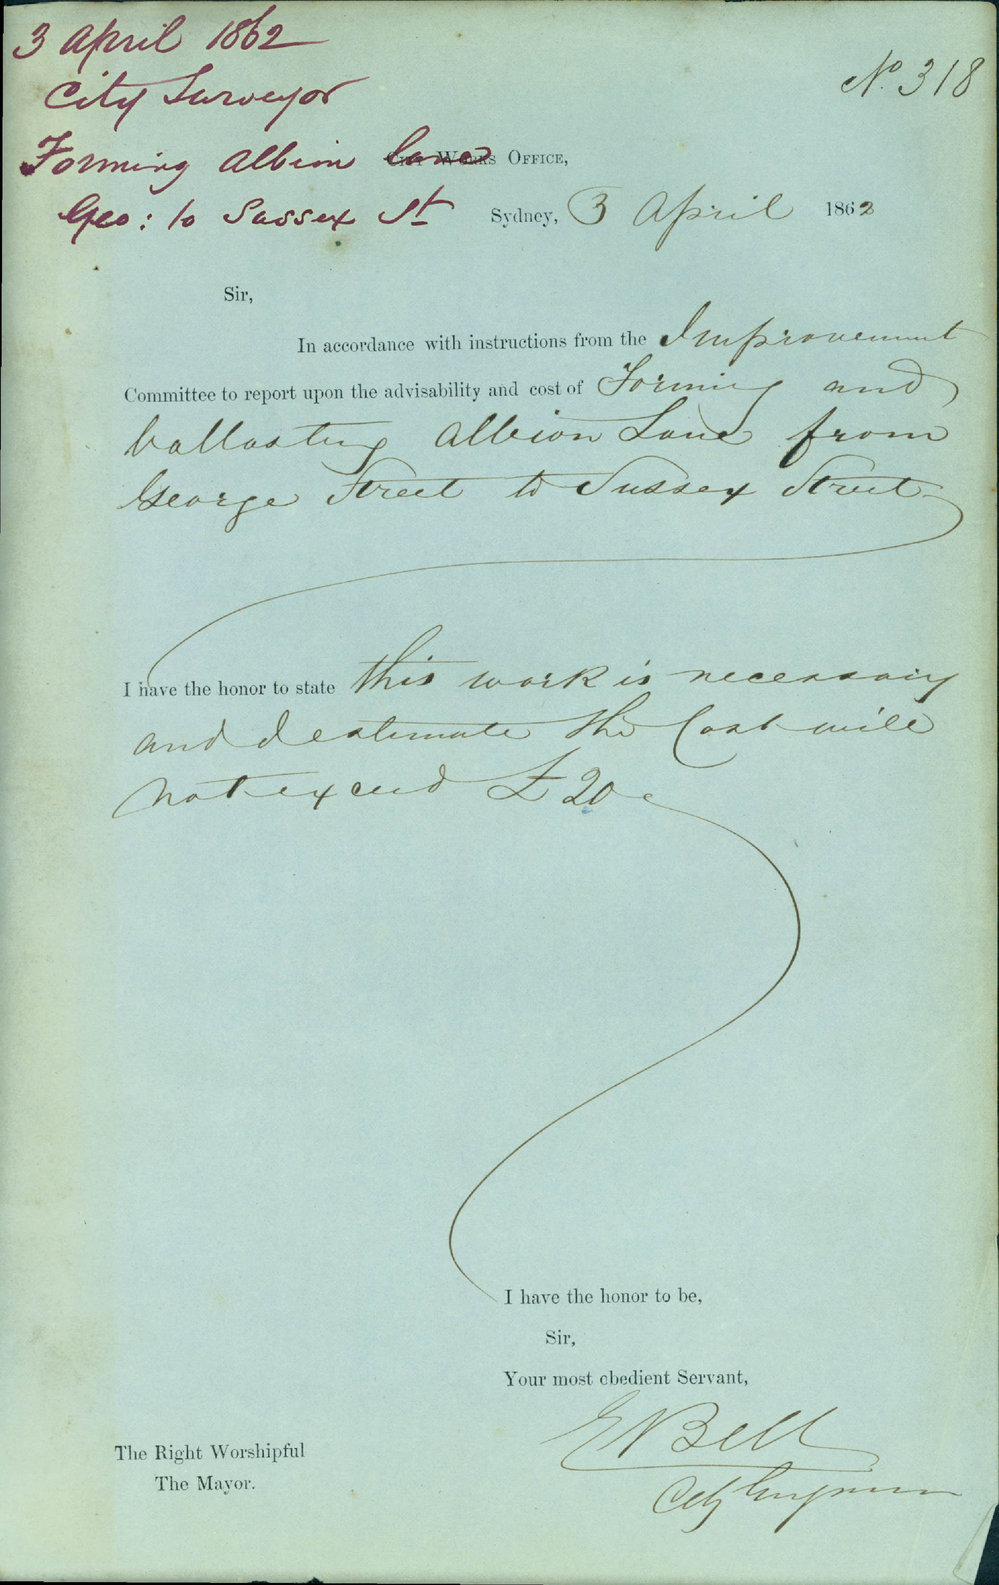 3 April 1862
City Surveyor
Forming Albion Lane
Geo: to Sussex St
No. 318
City Works Office,
Sydney, 3 April 1862
Sir,
In accordance with instructions from the Improvement
Committee to report upon the advisability and cost of Forming and
ballasting Albion Lane from
George Street to Sussex Street
I have the honor to state this work is necessary
and I estimate the Cost will
not exceed £20
I have the honor to be,
Sir,
Your most obedient Servant,
E Bell
City Engineer
The Right Worshipful
The Mayor.